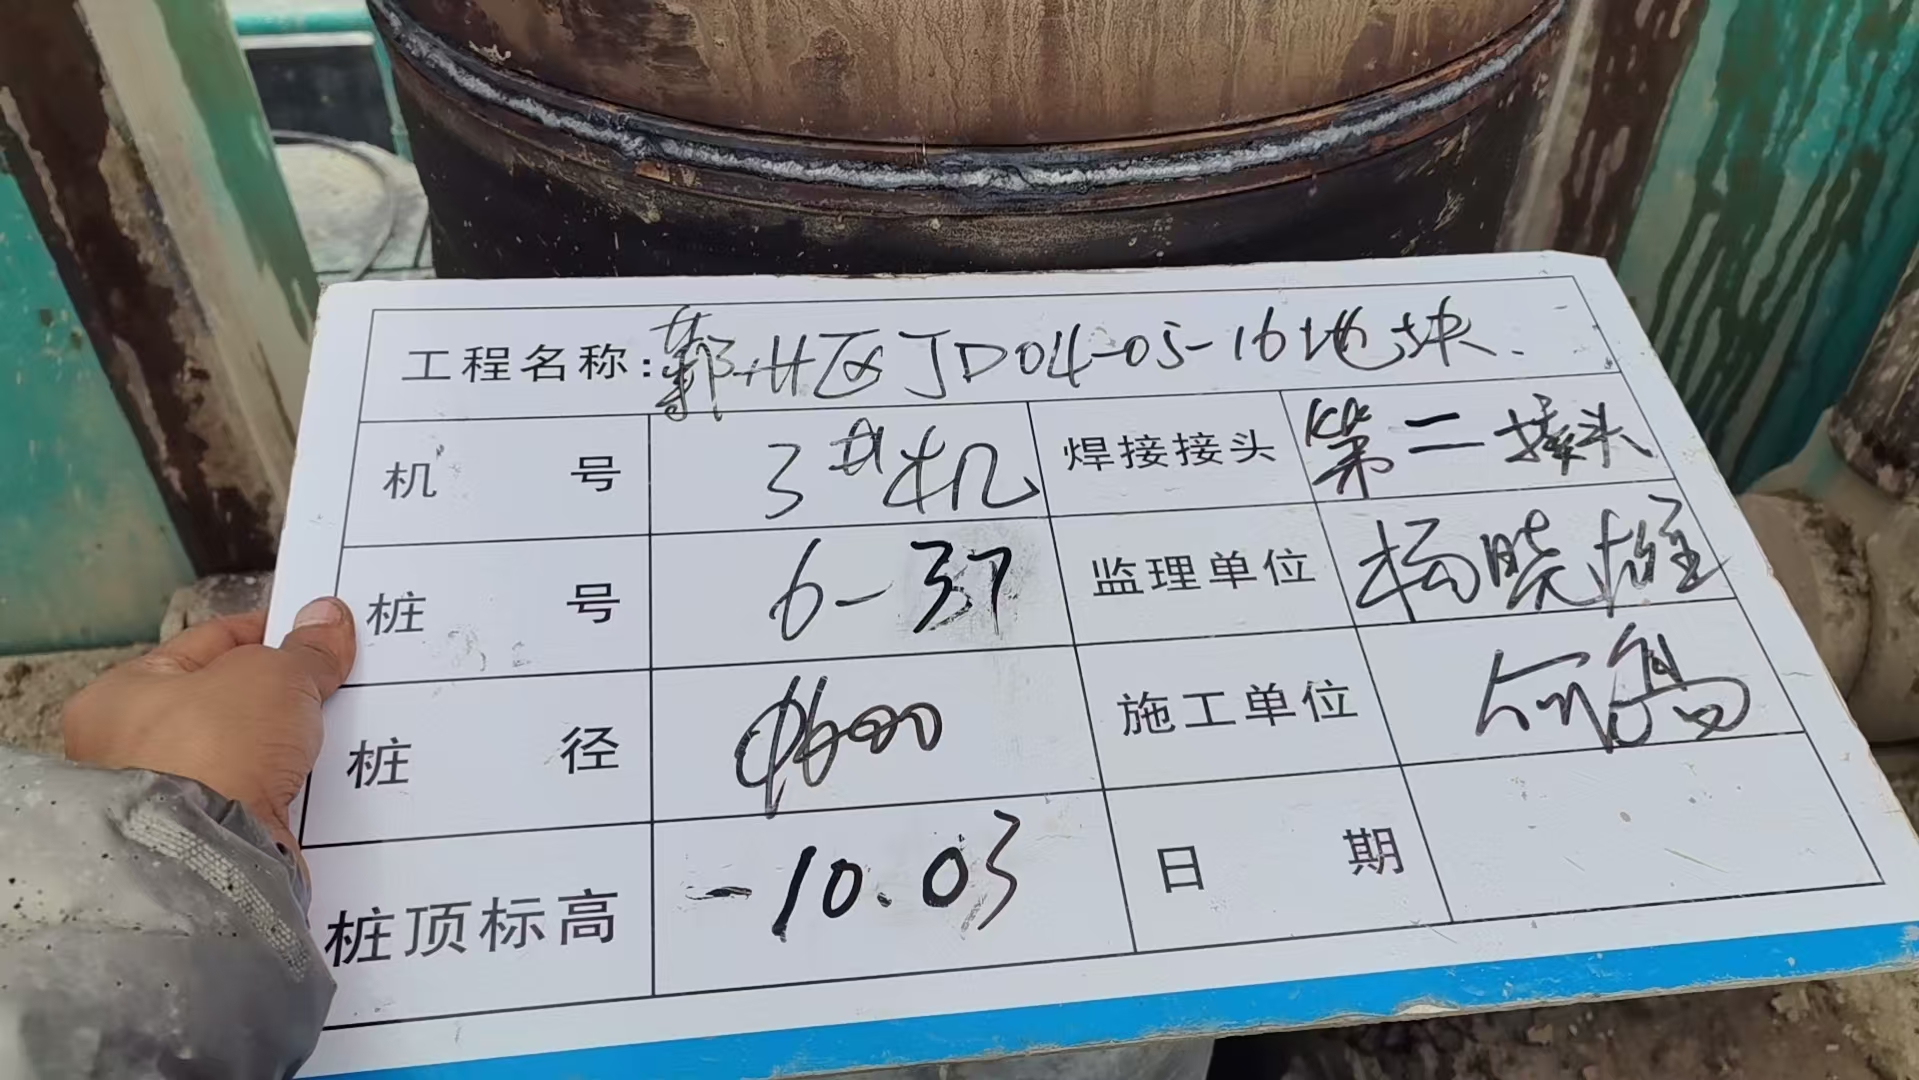 工程名称:鄞州区JD04-05-16地块.
机号 3#机 焊接接头 第二接头
桩号 6-37 监理单位 杨晓雄
桩径 Φ600 施工单位
桩顶标高 -10.03 日期